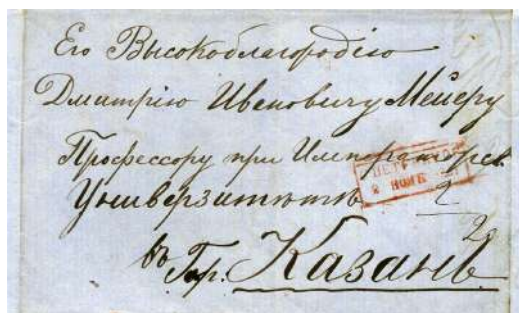 Его Высокоблагородію
Дмитрію Ивановичу Мейеру
Профессору при Императорск.
Универзитетѣ
въ Гор. Казань